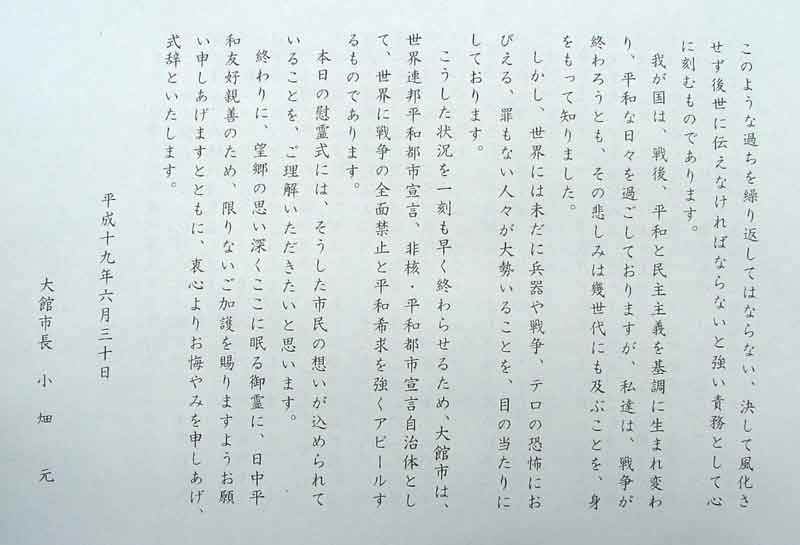 このような過ちを繰り返してはならない、決して風化さ
せず後世に伝えなければならないと強い責務として心
に刻むものであります。
我が国は、戦後、平和と民主主義を基調に生まれ変わ
り、平和な日々を過ごしておりますが、私達は、戦争が
終わろうとも、その悲しみは幾世代にも及ぶことを、身
をもって知りました。
しかし、世界には未だに兵器や戦争、テロの恐怖にお
びえる、罪もない人々が大勢いることを、目の当たりに
しております。
こうした状況を一刻も早く終わらせるため、大館市は、
世界連邦平和都市宣言、非核・平和都市宣言自治体とし
て、世界に戦争の全面禁止と平和希求を強くアピールす
るものであります。
本日の慰霊式には、そうした市民の想いが込められて
いることを、ご理解いただきたいと思います。
終わりに、望郷の思い深くここに眠る御霊に、日中平
和友好親善のため、限りないご加護を賜りますようお願
い申しあげますとともに、衷心よりお悔やみを申しあげ、
式辞といたします。
平成十九年六月三十日
大館市長 小畑 元